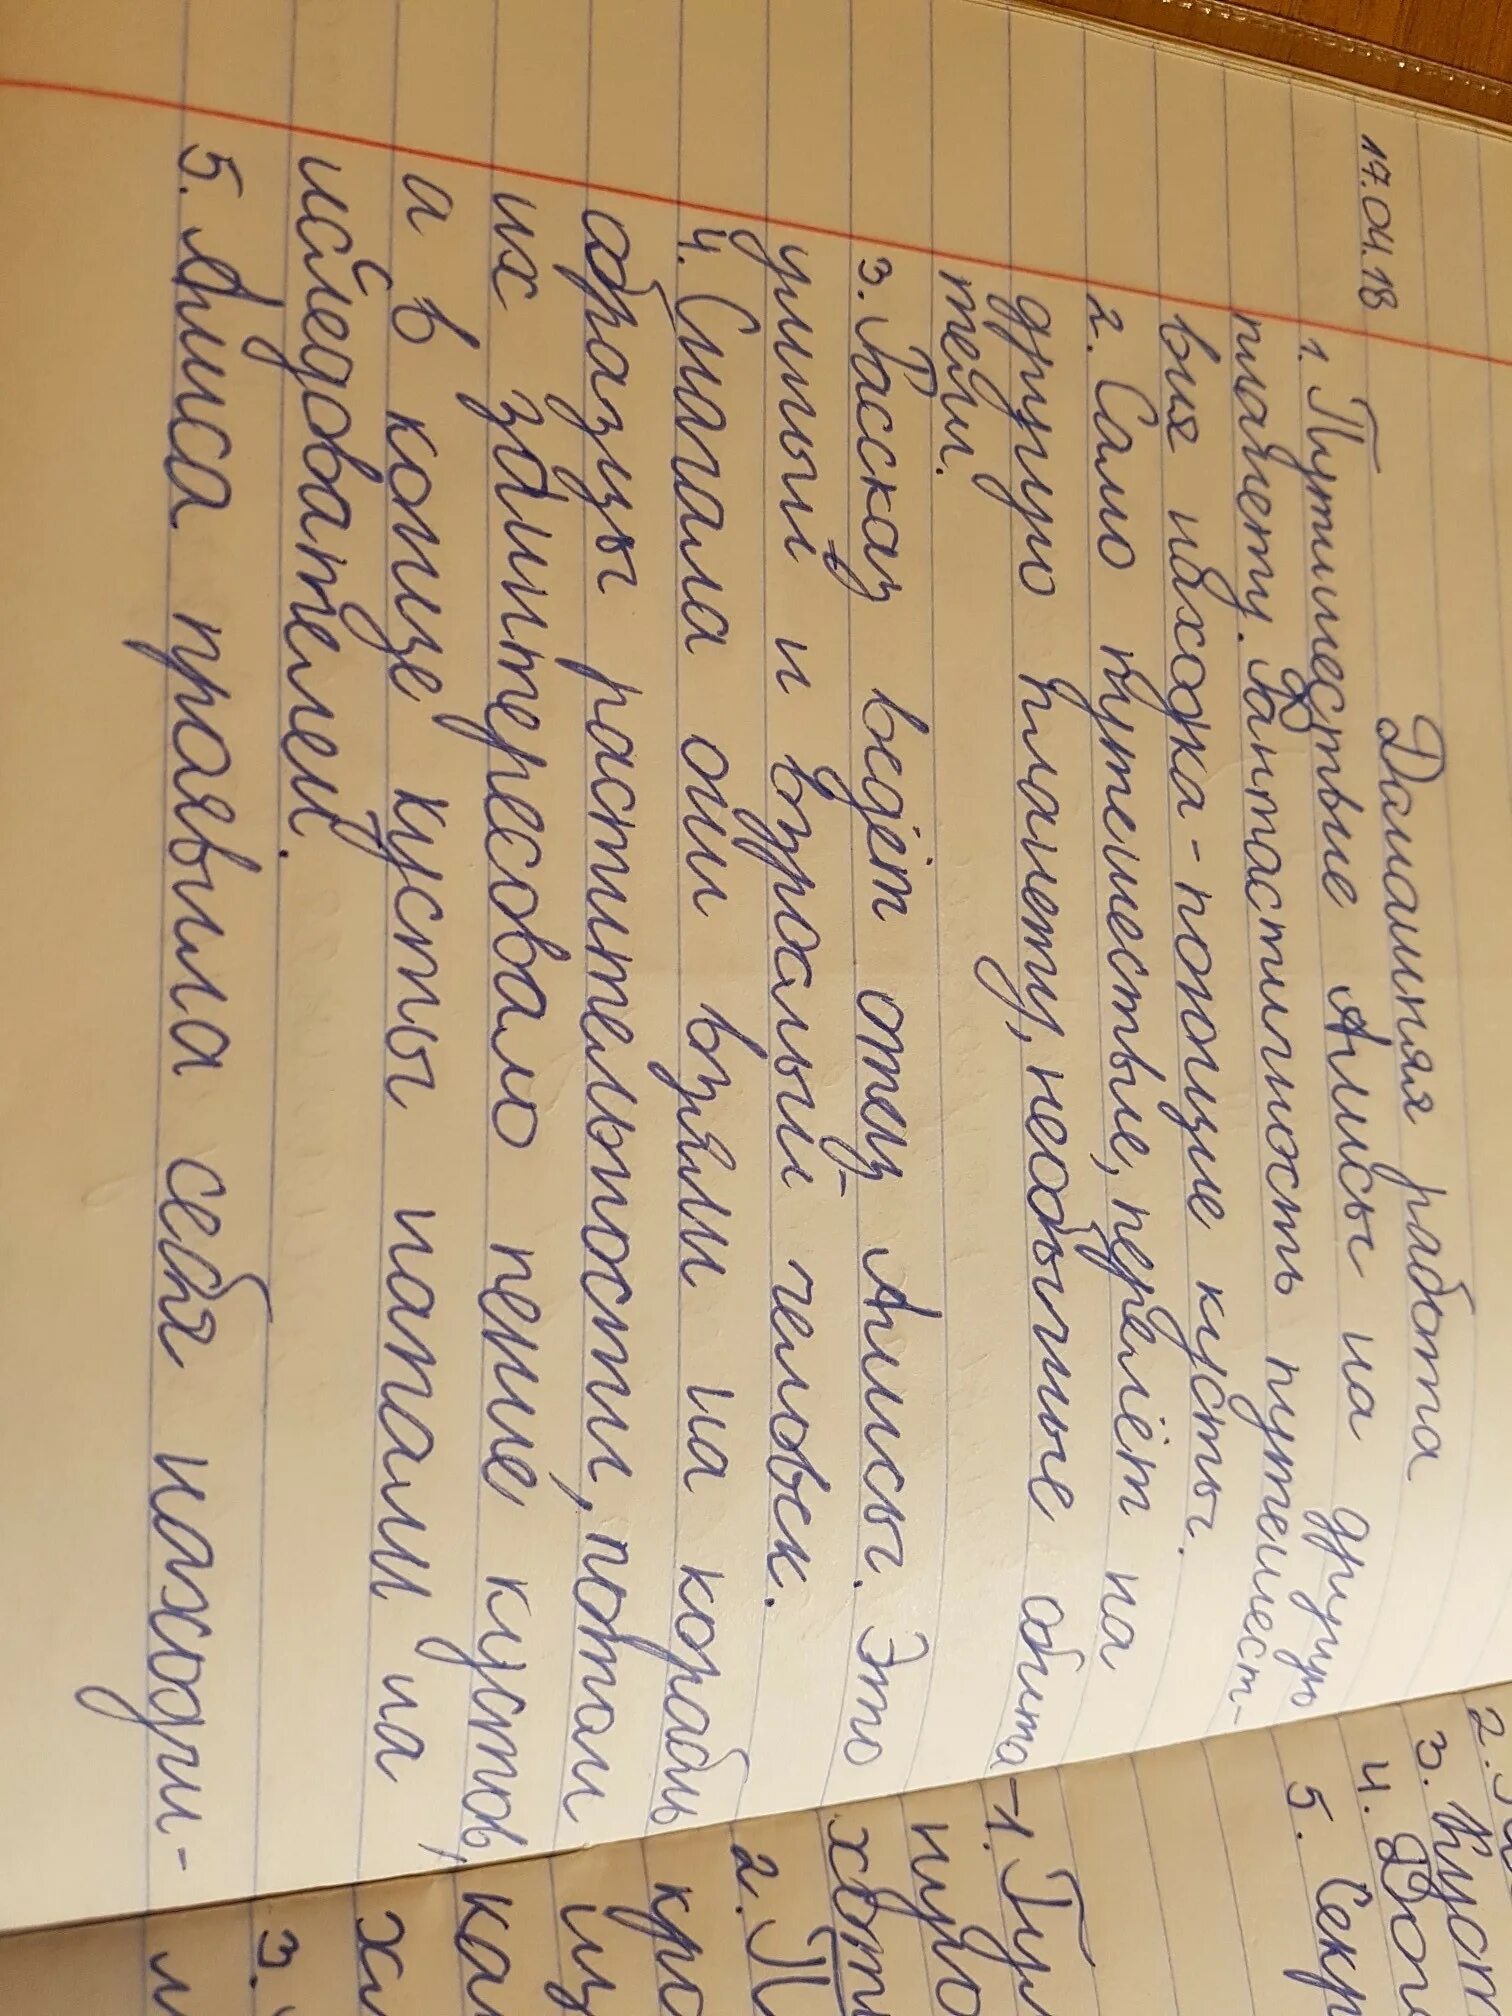 17.04.18
Домашняя работа
1. Путишествие Алисы на другую
планету. Фантастичность путешест-
вия находка - поющие кусты.
2. Само путешествие, перелёт на
другую планету, необычные обита-
тели.
3. Рассказ ведёт отец Алисы. Это
умный и взрослый человек.
4. Сначала они взяли на корабль
образцы растительности, потом
их заинтересовало пение кустов,
а в конце кусты напали на
исследователей.
5. Алиса проявила себя находчи-
2.
3. Куст
4.
5. Секр
1.
2.
3.